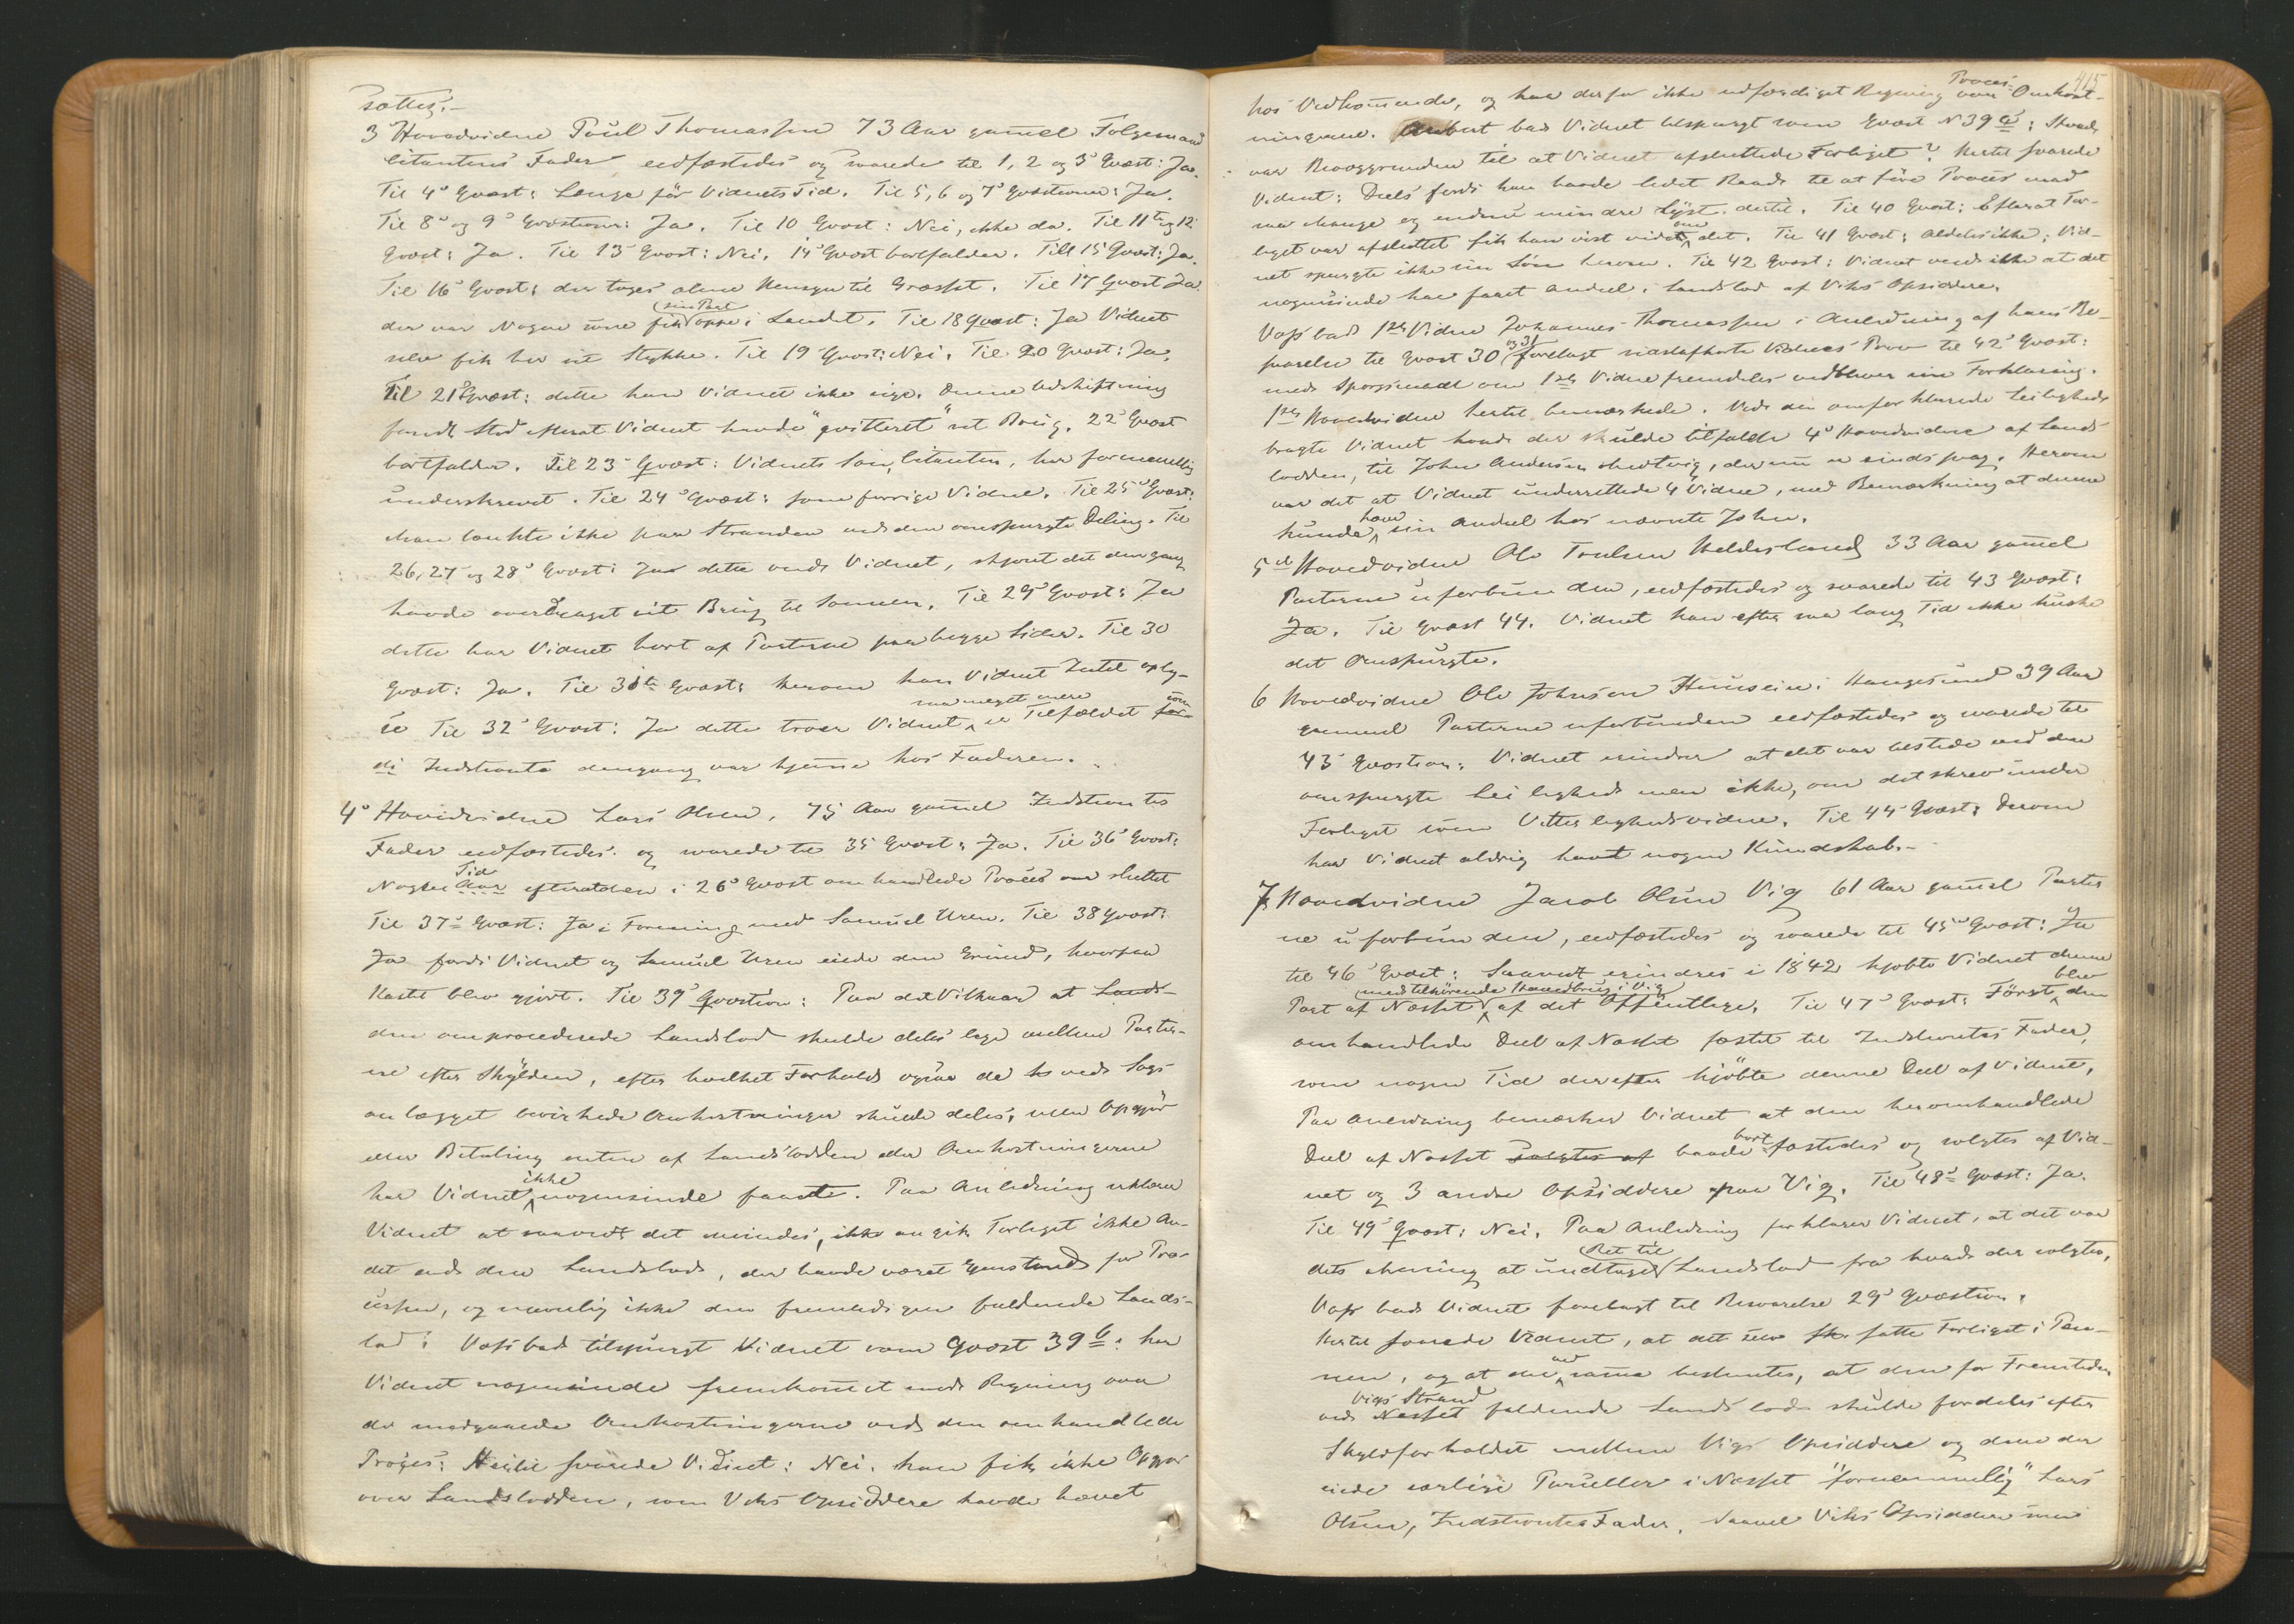 sættes.-
3' Hovedvidne Poul Thomassen 73 Aar gammel Følgemand
Citantens Fader eedfæstedes og svarede til 1, 2 og 3' Qvæst: Ja.
Til 4' Qvæst: Længe før Vidnets Tid. Til 5, 6 og 7' Qvæstioner: Ja.
Til 8' og 9' Qvæstioner: Ja. Til 10 Qvæst: Nei, ikke da. Til 11te og 12
Qvæst: Ja. Til 13' Qvæst: Nei. 14' Qvæst bortfalder. Till 15' Qvæst: Ja.
Til 16' Qvæst: der toges alene Hensyn til Græsset. Til 17 Qvæst Ja
der var Nogen som fik sin Part oppe i Landet. Til 18 Qvæst: Ja Vidnet
selv fik her sit Stykke. Til 19' Qvæst: Nei. Til 20 Qvæst: Ja.
Til 21' Qvæst: dette kan Vidnet ikke sige. Denne Udskiftning
fandt Sted efterat Vidnet havde "qvitteret" sit Brug. 22' Qvæst
bortfalder. Til 23' Qvæst: Vidnets Søn, Citanten, har formentlig
underskrevet. Til 24' Qvæst: som forrige Vidne. Til 25' Qvæst:
Man tænkte ikke paa Stranden ved den omspurgte Deling. Til
26, 27 og 28' Qvæst: Ja dette veed Vidnet, skjønt det dengang
havde overdraget sit Brug til Sønnen. Til 29' Qvæst: Ja
dette har Vidnet hørt af Parterne paa begge Sider. Til 30
Qvæst: Ja. Til 31te Qvæst: herom kan Vidnet Intet oply-
se Til 32' Qvæst: Ja dette troer Vidnet saa meget mere er Tilfældet som for-
di Indstevnte dengang var hjemme hos Faderen.
4' Hovedvidne Lars Olsen, 75 Aar gammel Indstevntes
Fader eedfæstedes og svarede til 35 Qvæst: Ja. Til 36' Qvæst:
Nogen Tid Aar efteratden i 26' Qvæst omhandlede Proces var sluttet
Til 37' Qvæst: Ja i Forening med Samuel Uren. Til 38 Qvæst:
Ja fordi Vidnet og Samuel Uren eiede den Grund, hvorpaa
Kastet blev gjort. Til 39' Qvæstion: Paa det Vilkaar at Lands-
den omprocederede Landslod skulde deles lige mellem Parter-
ne efter Skylden, efter hvilket Forhold ogsaa de ved Sags-
anlægget bevirkede Omkostninger skulde deles, men Opgjør
eller Betaling enten af Landslodden eller Omkostningerne
har Vidnet ikke nogensinde faaet. Paa Anledning erklærer
Vidnet at saavidt det mindes, ikke angik Forliget ikke An-
det end den Landslod, der havde været Gjenstand for Pro-
cessen, og navnlig ikke den fremtidigen faldende Lands-
lod. Voss bad tilspurgt Vidnet som Qvæst 39 b: har
Vidnet nogensinde fremkommet med Regning over
de medgaaede Omkostningerne ved den omhandlede
Proces: Hertil svarede Vidnet: Nei, han fik ikke Opgjør
over Landslodden, som Viks Opsiddere havde hævet
415
hos Vedkommende, og har derfor ikke udfærdiget Regning over Proces-Omkost-
ningerne. bad Vidnet tilspurgt som Qvæst N 39 c: Hvad
var Bevæggrunden til at Vidnet afsluttede Forliget? Hertil svarede
Vidnet: Deels fordi han havde lidet Raad til at føre Proces med
saa Mange og endnu mindre Lyst dertil. Til 40 Qvæst: Efterat For-
liget var afsluttet fik han vist vide om det. Til 41 Qvæst: aldeles ikke; Vid-
net spurgte ikke sin Søn herom. Til 42 Qvæst: Vidnet veed ikke at det
nogensinde har faaet Andeel i Landslod af Viks Opsiddere.
Voss bad 1ste Vidne Johannes Thomassen i Anledning af hans Be-
svarelse til Qvæst 30 og 31 forelagt næstafhørte Vidnes Prov til 42' Qvæst:
med Spørgsmaal om 1ste Vidne fremdeles vedbliver sin Forklaring.
1ste Hovedvidne hertil bemærkede. Ved den omforklarede Leilighed
bragte Vidnet hvad der skulde tilfalde 4' Hovedvidne af Lands-
lodden, til John Andersen , der nu er sindssvag. Herom
var det at Vidnet underrettede 4' Vidne, med Bemærkning at denne
kunde have sin Andeel hos nævnte John.
5te Hovedvidne Ole Helderland 33 Aar gammel
Parterne uforbunden, eedfæstedes og svarede til 43 Qvæst:
Ja. Til Qvæst 44. Vidnet kan efter saa lang Tid ikke huske
det Omspurgte.
6 Hovedvidne Ole Johnsen i Haugesund 39 Aar
gammel Parterne uforbunden eedfæstedes og svarede til
43' Qvæstion: Vidnet erindrer at det var tilstede ved den
omspurgte Leilighed men ikke, om det skrev under
Forliget som Vitterlighedsvidne. Til 44' Qvæst: Derom
har Vidnet aldrig havt nogen Kundskab.-
7 Hovedvidne Jacob Olsen Vig 61 Aar gammel Parter
ne uforbunden, eedfæstedes og svarede til 45' Qvæst: Ja
til 46' Qvæst: Saavidt erindres i 1842 kjøbte Vidnet denne
Part af Næsset med tilhørende Hovedbrug i Vig af det Offentlige. Til 47' Qvæst: Først blev den
omhandlede Deel af Næsset fæstet til Indstevntes Fader,
som nogen Tid derefter kjøbte denne Deel af Vidnet.
Paa Anledning bemærker Vidnet at den heromhandlede
Deel af Næsset solgtes af baade bortfæstedes og solgtes af Vid-
net og 3 andre Opsiddere paa Vig. Til 48' Qvæst: Ja.
Til 49' Qvæst: Nei. Paa Anledning forklarer Vidnet, at det var
dets Mening at undtage Ret til Landslod fra hvad der solgtes.
Voss bad Vidnet forelagt til Besvarelse 29' Qvæstion.
Hertil svarede Vidnet, at det selv satte Forliget i Pen-
nen, og at der ved samme bestemtes, at den for Fremtiden
ved Vigs Strand Næsset faldende Landslod skulde fordeles efter
Skyldforholdet mellem Vigs Opsiddere og dem der
eiede særlige Parceller i Næsset "fornemmelig" Lars
Olsen, Indstevntes Fader. Viks Opsiddere som